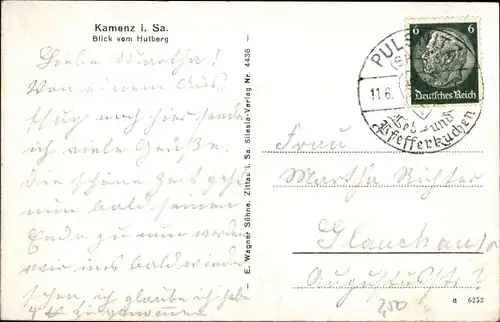 Kamenz i. Sa.
Blick vom Hutberg
Liebe Martha!
Von einem Aus
flug nach hier sende
ich viele Grüße.
Die schöne Zeit geht
nun bald seinem
Ende zu nun werden
wir uns bald wieder
sehen, ich glaube ich habe
zugenommen
E. Wagner Söhne, Zittau i. Sa. Silesia-Verlag Nr. 4436
6 6
Deutsches Reich
PULSNITZ
11.6.
und
Pfefferkuchen
Frau
Martha Richter
Glauchau
Auguststr.
a 6252
2,50